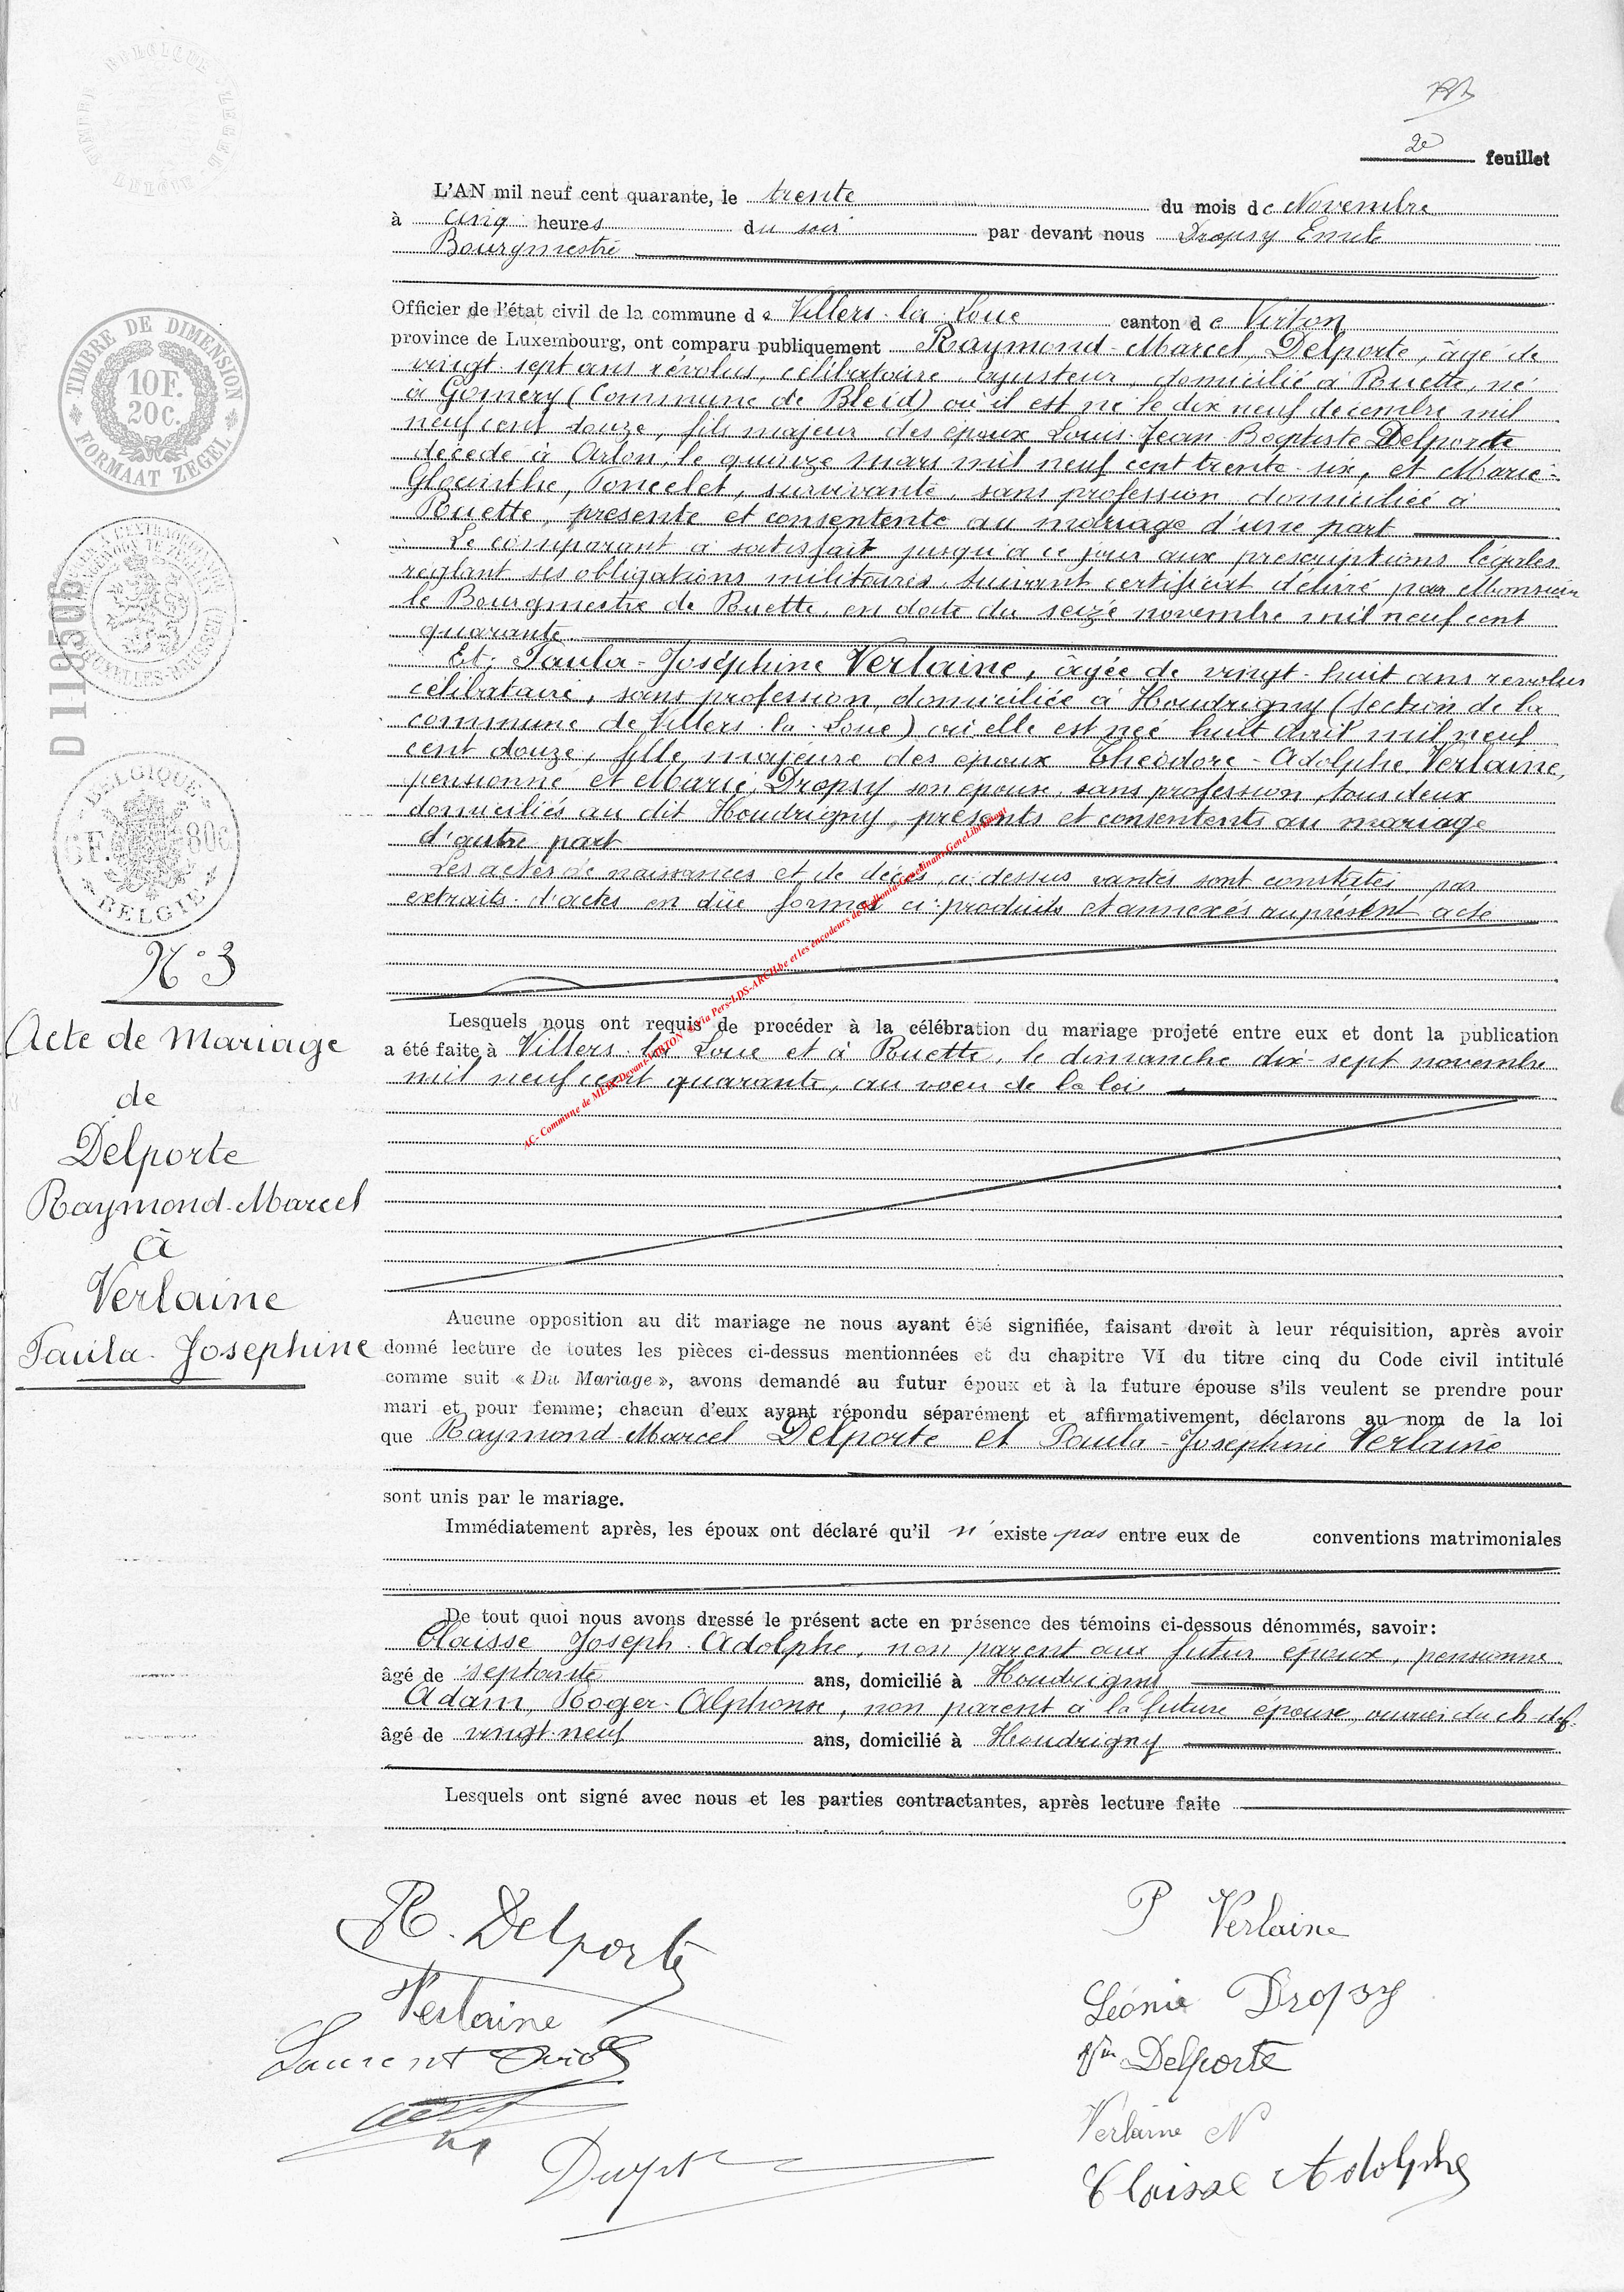 2e feuillet
L'AN mil neuf cent quarante, le trente du mois de Novembre
à cinq heures du soir par devant nous Dropsy Emile
Bourgmestre
Officier de l'état civil de la commune de Villers-la-Loue canton de Virton
province de Luxembourg, ont comparu publiquement Raymond-Marcel, Delporte, âgé de
vingt-sept ans révolus, célibataire, ajusteur, domicilié à Ruette, né
à Gomery (Commune de Bleid) où il est né le dix neuf décembre mil
neuf cent douze, fils majeur des époux Louis-Jean-Baptiste Delporte
décédé à Arlon, le quinze mars mil neuf cent trente-six, et Marie-
Poncelet, survivante, sans profession domiciliée à
Ruette, présente et consentente au mariage d'une part
Le comparant a satisfait jusqu'à ce jour aux prescriptions légales
réglant ses obligations militaires suivant certificat délivré par Monsieur
le Bourgmestre de Ruette, en date du seize novembre mil neuf cent
quarante.
Et, Paula-Joséphine Verlaine, âgée de vingt-huit ans révolus
célibataire, sans profession, domiciliée à Houdrigny (section de la
commune de Villers-la-Loue) où elle est née huit avril mil neuf
cent douze, fille majeure des époux Théodore-Adolphe Verlaine,
pensionné et Marie, Dropsy son épouse, sans profession, tous deux
domiciliés au dit Houdrigny, présents et consentents au mariage
d'autre part
Les actes de naissances et de décès ci-dessus vantés sont constatés par
extraits d'actes en dûe formes ci-produits et annexés au présent acte
Lesquels nous ont requis de procéder à la célébration du mariage projeté entre eux et dont la publication
a été faite à Villers-la-Loue et à Ruette, le dimanche dix-sept novembre
mil neuf cent quarante, au voeu de la loi
Aucune opposition au dit mariage ne nous ayant été signifiée, faisant droit à leur réquisition, après avoir
donné lecture de toutes les pièces ci-dessus mentionnées et du chapitre VI du titre cinq du Code civil intitulé
comme suit « Du Mariage », avons demandé au futur époux et à la future épouse s'ils veulent se prendre pour
mari et pour femme; chacun d'eux ayant répondu séparément et affirmativement, déclarons au nom de la loi
que Raymond-Marcel Delporte et Paula-Josephine Verlaine
sont unis par le mariage.
Immédiatement après, les époux ont déclaré qu'il n'existe pas entre eux de conventions matrimoniales
De tout quoi nous avons dressé le présent acte en présence des témoins ci-dessous dénommés, savoir:
Claisse Joseph-Adolphe, non parent aux futur époux, pensionné
âgé de septante ans, domicilié à Houdrigny
Adam, Roger-Alphonse, non parent à la future épouse, ouvrier du ch. d. f.
âgé de vingt-neuf ans, domicilié à Houdrigny
Lesquels ont signé avec nous et les parties contractantes, après lecture faite
R. Delporte
P Verlaine
Verlaine
Léonie Dropsy
Laurent
Delporte
Verlaine N
Claisse Adolphe
TIMBRE DE DIMENSION
10F.
20C.
FORMAAT ZEGEL
D 119506
BELGIQUE
6F. 80c
BELGIE
N° 3
Acte de Mariage
de
Delporte
Raymond-Marcel
à
Verlaine
Paula-Josephine